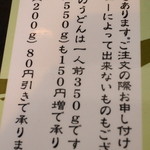 あります。ご注文の際お申し付け
ーによって出来ないものもござ
のうどんは一人前350gです
550g)も150円増で承り
200g)80円引きで承りま